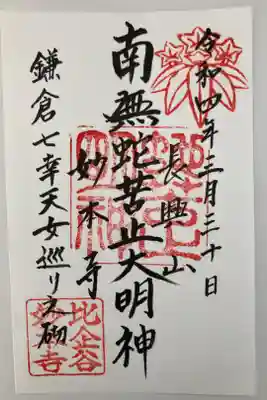 令和四年三月三十日
長興山
南無蛇苦止大明神
妙本寺
鎌倉七幸天女巡リ之砌
比企谷
妙本寺